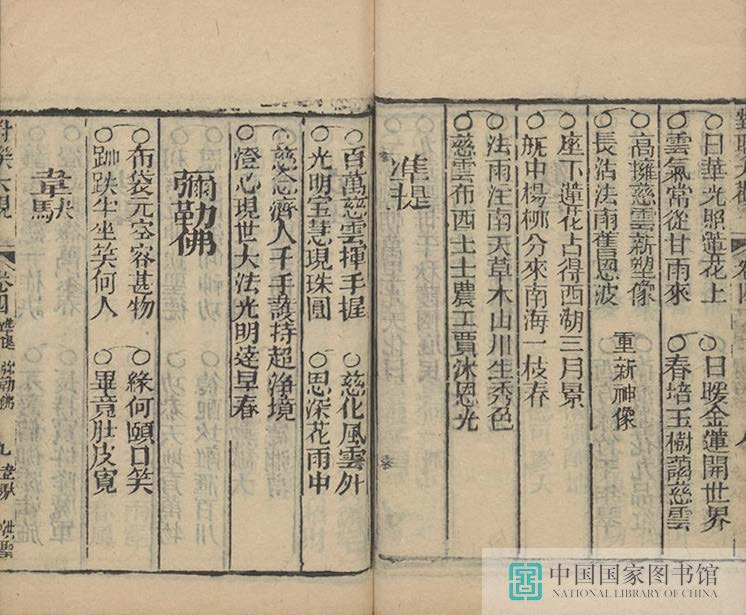 ○日華光照蓮花上　○日暖金蓮開世界
○雲氣常從甘雨來　○春培玉樹藹慈雲
○高擁慈雲新塑像
○長沾法雨舊恩波　重新神像
○座下蓮花占得西湖三月景
○瓶中楊柳分來南海一枝春
○法雨注南天草木山川生秀色
○慈雲布西土士農工賈沐恩光
准提
○百萬慈雲揮手握　○慈化風雲外
○光明宝慧現珠圓　○恩深花雨中
○慈念濟人千手護持超淨境
○燈心現世大法光明達早春
彌勒佛
○布袋元空容甚物　○緣何頤口笑
○跏趺半坐笑何人　○畢竟肚皮寬
韋馱
卷四 准提 弥勒佛 九 韋馱
中国国家图书馆
NATIONAL LIBRARY OF CHINA